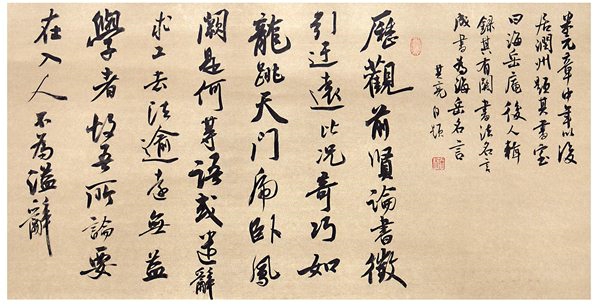 米元章中年以後
居潤州額其書室
曰海岳庵後人輯
錄其有關書法名言
成書為海岳名言
其亮自題
歷觀前賢論書徵
引迂遠比况奇巧如
龍跳天門虎卧鳳
闕是何等語或遣辭
求工去法逾遠無益
學者故吾所論要
在入人不為溢辭